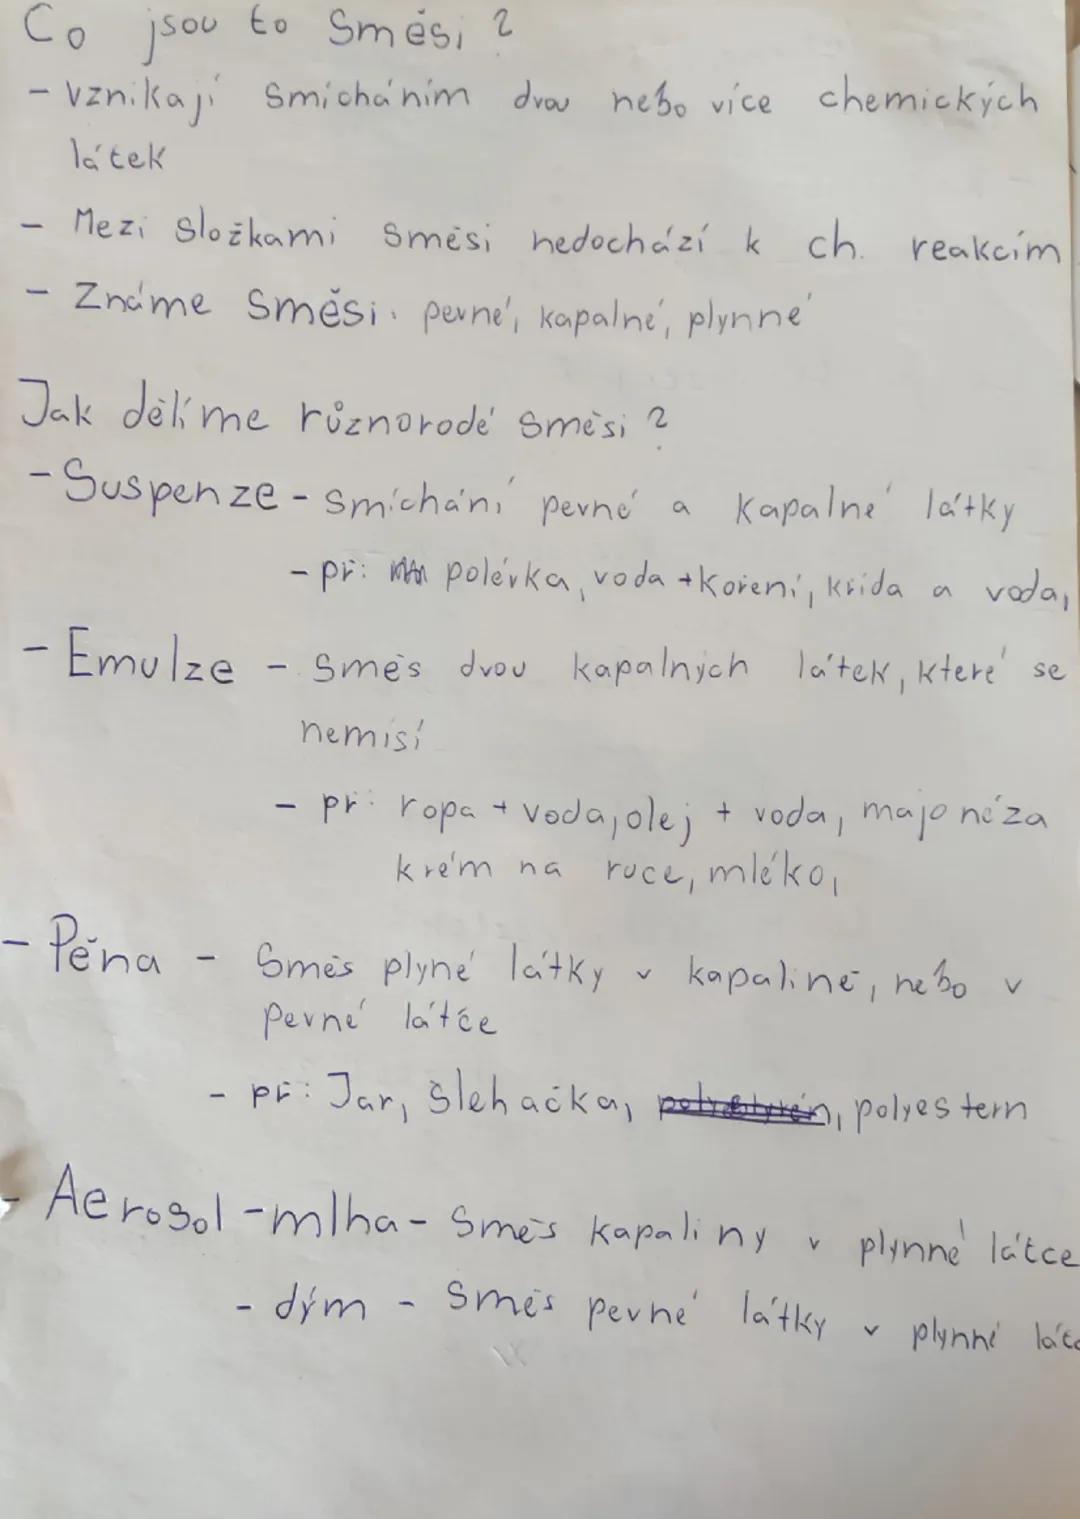 Co jsou to Směsi?
- Vznikají Smícháním dvou nebo více chemických
látek
- Mezi Složkami Směsi nedochází k ch. reakcím
- Známe Směsi: pevné, kapalné, plynné
Jak dělíme různorodé Směsi?
- Suspenze - Smíchání pevné a kapalné látky
- př: polévka, voda + koření, křída a voda,
- Emulze - Směs dvou kapalných látek, které se
nemísí
- př: ropa + voda, olej + voda, majonéza
krém na ruce, mléko,
- Pěna - Směs plyné látky v kapalině, nebo v
pevné látce
- př: Jar, šlehačka, polystyrén, polyestern
- Aerosol - mlha - Směs kapaliny v plynné látce
- dým - Směs pevné látky v plynné látc